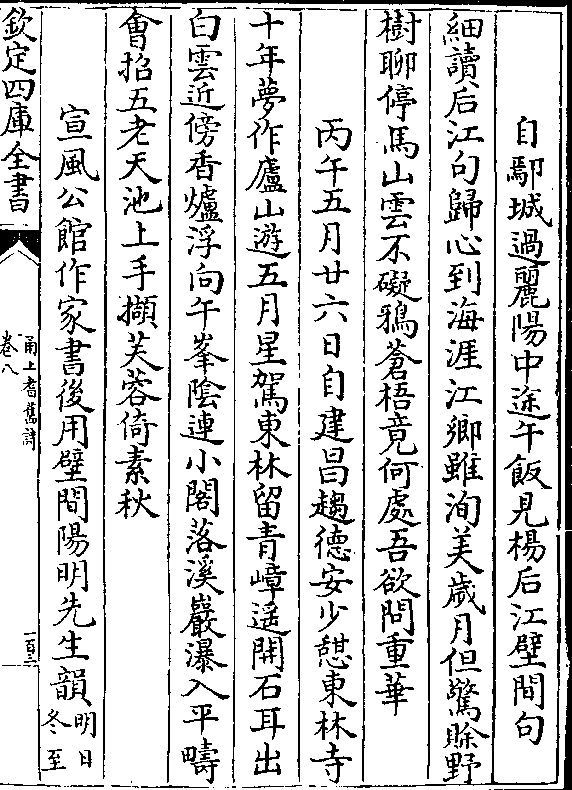 自鄢城過麗陽中途午飯見楊后江壁間句
細讀后江句歸心到海涯江鄉雖洵美歲月但驚賖野
樹聊停馬山雲不礙鴉蒼梧竟何處吾欲問重華
丙午五月廿六日自建昌趨德安少憇東林寺
十年夢作廬山遊五月星駕東林留青嶂遥開石耳出
白雲近傍香爐浮向午峯陰連小閣落溪巖瀑入平疇
會招五老天池上手擷芙蓉倚素秋
宣風公館作家書後用壁間陽明先生韻明日冬至
欽定四庫全書
甬上耆舊詩
卷八
一百三